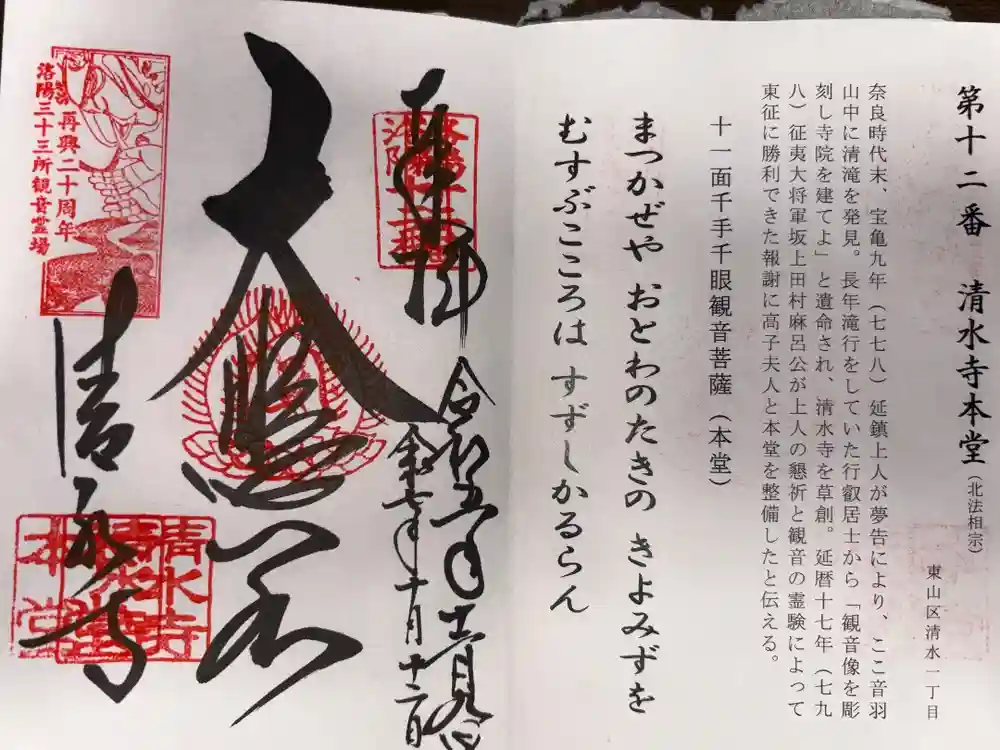 第十二番　清水寺本堂（北法相宗）
東山区清水一丁目
奈良時代末、宝亀九年（七七八）延鎮上人が夢告により、ここ音羽
山中に清滝を発見。長年滝行をしていた行叡居士から「観音像を彫
刻し寺院を建てよ」と遺命され、清水寺を草創。延暦十七年（七九
八）征夷大将軍坂上田村麻呂公が上人の懇祈と観音の霊験によって
東征に勝利できた報謝に高子夫人と本堂を整備したと伝える。
十一面千手千眼観音菩薩（本堂）
まつかぜや おとわのたきの きよみずを
むすぶこころは すずしかるらん
奉拝
令和五年十一月九日
令和七年十月十二日
大悲閣
清水寺
再興二十周年
洛陽三十三所観音霊場
清水寺
本堂